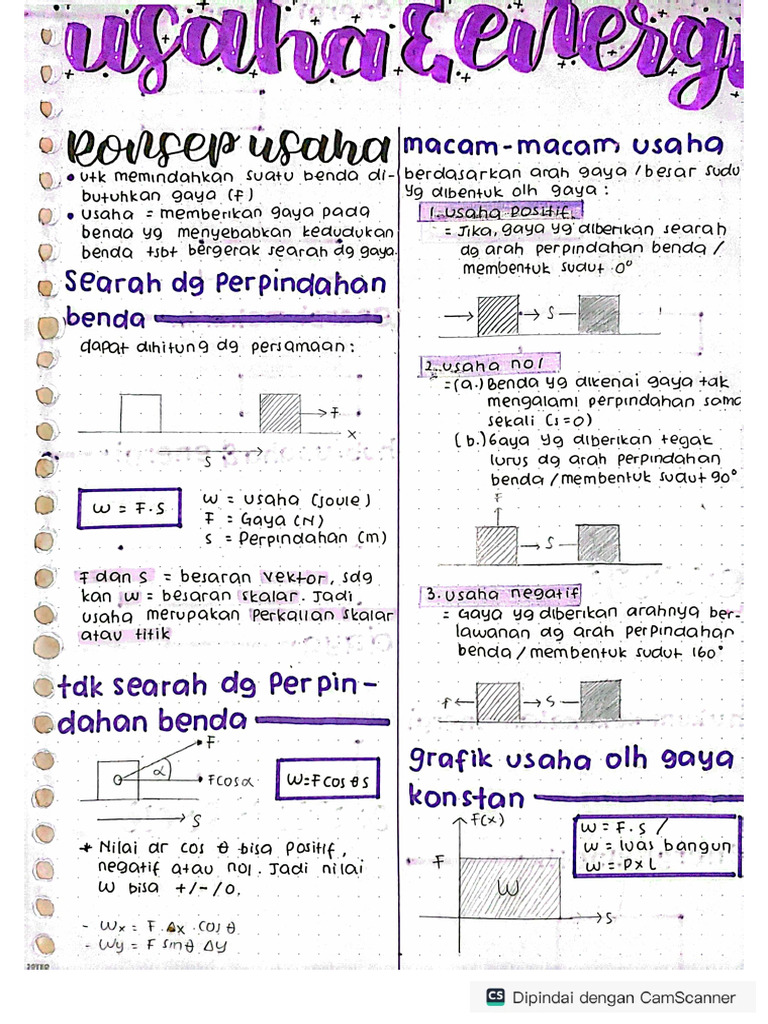 usaha & energi
Konsep usaha
• utk memindahkan suatu benda di-
butuhkan gaya (F)
• usaha = memberikan gaya pada
benda yg menyebabkan kedudukan
benda tsbt bergerak searah dg gaya.
Searah dg Perpindahan
benda
dapat dihitung dg persamaan:
F
x
S
W = F.S
W = usaha (Joule)
F = Gaya (N)
S = Perpindahan (m)
F dan S = besaran vektor, sdg
kan W = besaran skalar. Jadi
usaha merupakan Perkalian skalar
atau titik
tdk searah dg Perpin-
dahan benda
F
α
F cos α
W=F cos θ S
S
* Nilai dr cos θ bisa positif,
negatif atau nol. Jadi nilai
W bisa +/-/0.
- Wx = F . Δx . cos θ
- Wy = F sin θ Δy
macam-macam usaha
berdasarkan arah gaya / besar sudu
yg dibentuk olh gaya:
1. usaha positif.
= Jika, gaya yg diberikan searah
dg arah perpindahan benda /
membentuk sudut 0°
S
2. usaha nol
= (a.) Benda yg dikenai gaya tdk
mengalami perpindahan sama
sekali (s=0)
(b.) Gaya yg diberikan tegak
lurus dg arah perpindahan
benda / membentuk sudut 90°
F
S
3. usaha negatif
= Gaya yg diberikan arahnya ber-
lawanan dg arah perpindahan
benda / membentuk sudut 160°
F
S
grafik usaha olh gaya
konstan
F(x)
W = F.S /
W = luas bangun
W = P x L
F
W
S
CS Dipindai dengan CamScanner